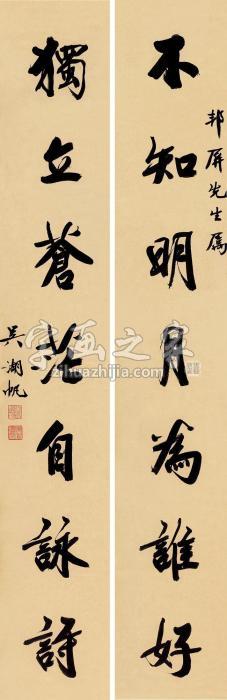 邦屏先生属
不知明月為誰好
獨立蒼茫自詠詩
吳湖帆
字画之家
zihuazhijia.com